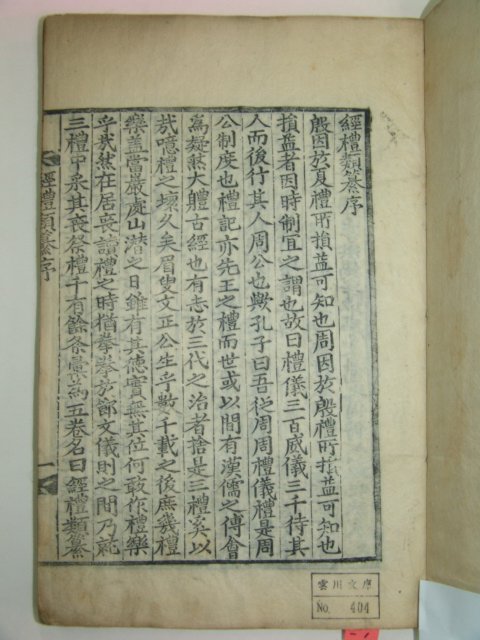 經禮類纂序
殷因於夏禮所損益可知也周因於殷禮所損益可知也
損益者因時制宜之謂也故曰禮儀三百威儀三千待其
人而後行其人周公也歟孔子曰吾從周周禮儀禮是周
公制度也禮記亦先王之禮而世或以間有漢儒之傳會
爲疑然大體古經也有志於三代之治者捨是三禮奚以
哉噫禮之壞久矣眉叟文正公生乎數千載之後庶幾禮
樂盖當巖處山潜之日雖有其德實無其位何敢作禮樂
乎哉然在居喪讀禮之時猶拳拳於郁文儀則之間乃就
三禮中采其喪祭禮千有餘条彙爲五卷名曰經禮類纂
經禮類纂序
一
雲川文庫
No. 404